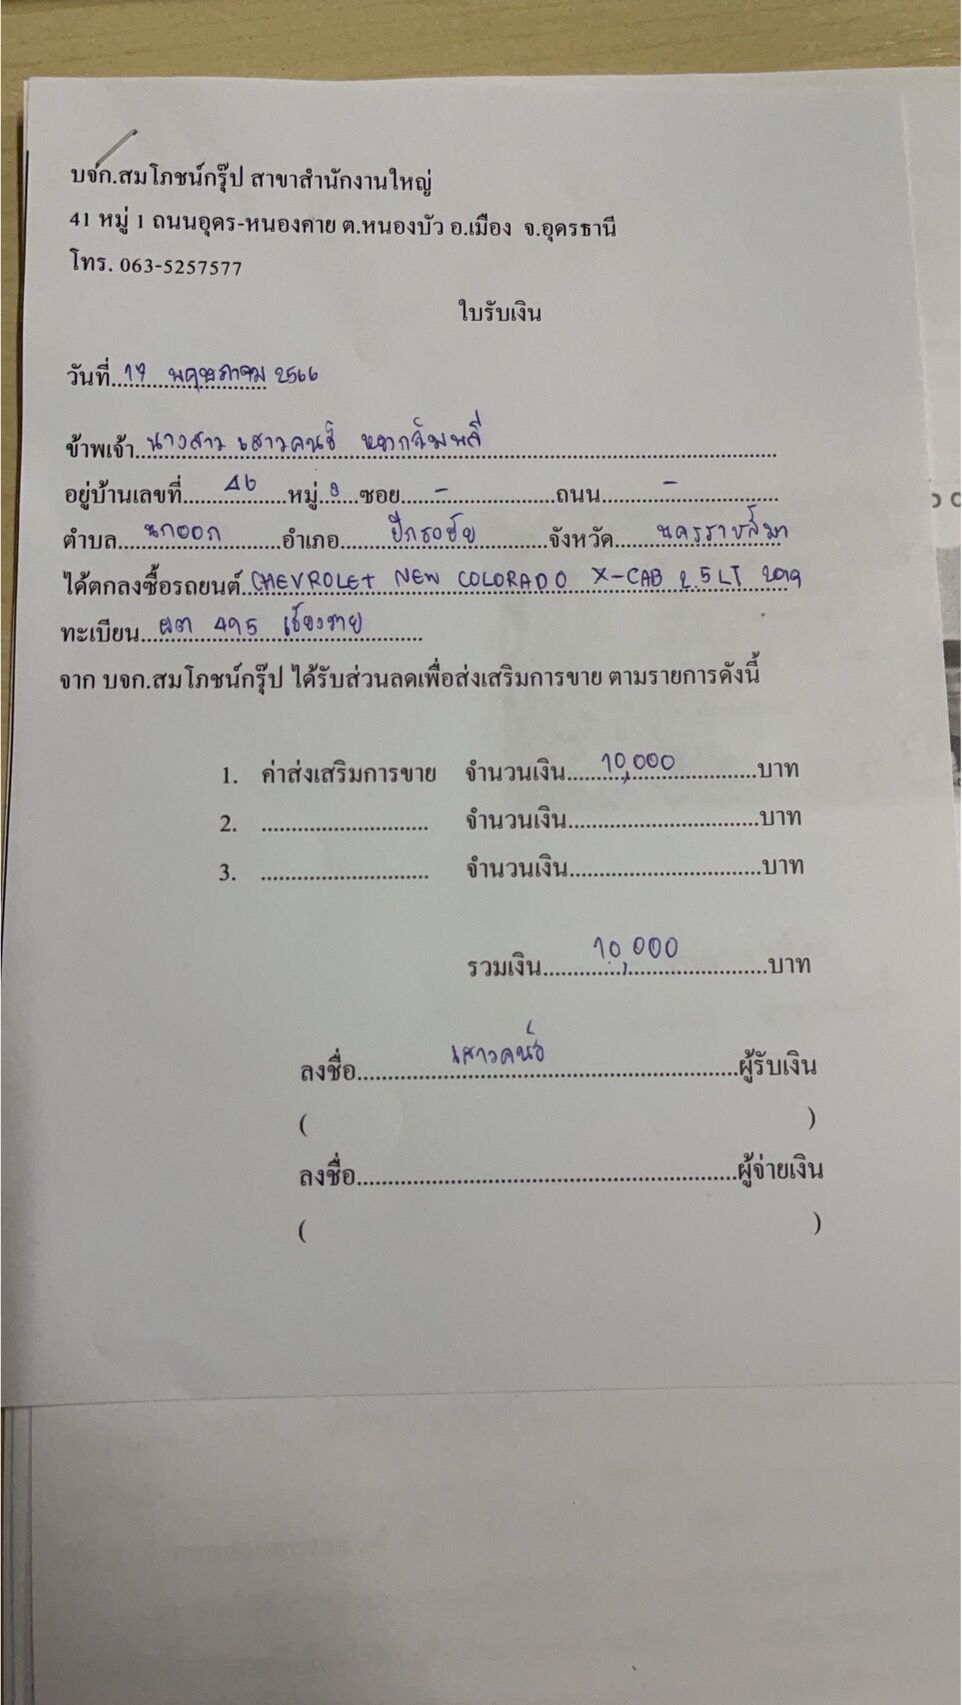 บจก.สมโภชน์กรุ๊ป สาขาสำนักงานใหญ่
41 หมู่ 1 ถนนอุดร-หนองคาย ต.หนองบัว อ.เมือง จ.อุดรธานี
โทร. 063-5257577
ใบรับเงิน
วันที่ 17 พฤษภาคม 2566
ข้าพเจ้า นางสาว เสาวคนธ์
อยู่บ้านเลขที่ หมู่ 8 ซอย - ถนน -
ตำบล นกออก อำเภอ ปักธงชัย จังหวัด นครราชสีมา
ได้ตกลงซื้อรถยนต์ CHEVROLET NEW COLORADO X-CAB 2.5 LT 2019
ทะเบียน ผต 495 เชียงราย
จาก บจก.สมโภชน์กรุ๊ป ได้รับส่วนลดเพื่อส่งเสริมการขาย ตามรายการดังนี้
1. ค่าส่งเสริมการขาย จำนวนเงิน 10,000 บาท
2. ............................ จำนวนเงิน................................บาท
3. ............................ จำนวนเงิน................................บาท
รวมเงิน 10,000 บาท
ลงชื่อ เสาวคนธ์ ผู้รับเงิน
( )
ลงชื่อ................................................................ผู้จ่ายเงิน
( )